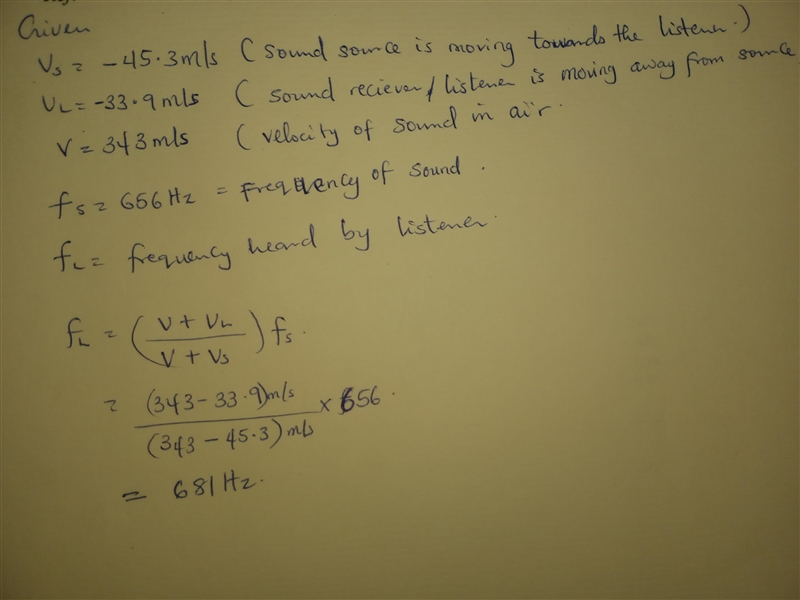 Given
Vs = -45.3m/s ( sound source is moving towards the listener.)
VL = -33.9m/s ( sound reciever/listener is moving away from source
V = 343m/s ( velocity of sound in air.
fs = 656Hz = Frequency of sound.
fL = frequency heard by listener.
fL = (V + VL / V + Vs) fs.
= (343 - 33.9)m/s / (343 - 45.3)m/s × 656.
= 681Hz.